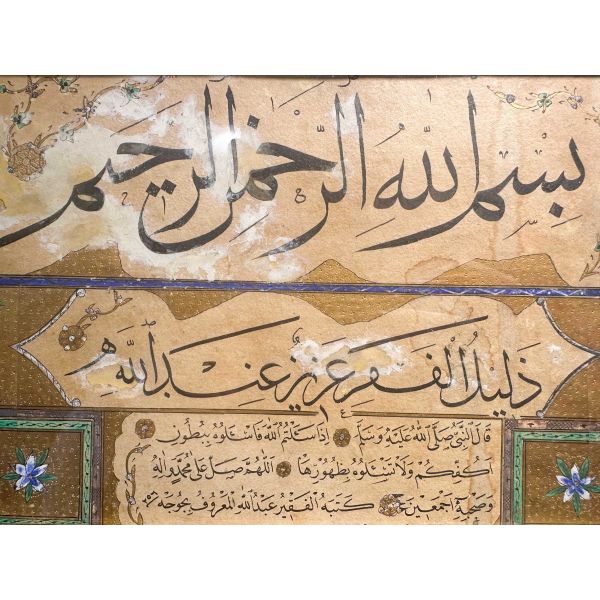 بسم الله الرحمن الرحيم
ذليل الفقر عزيز عند الله
قال النبي صلى الله عليه وسلم إذا سئلتم الله فاسئلوه ببطون
اكفكم ولا تسئلوه بظهورها اللهم صل على محمد وآله
وصحبه اجمعين كتبه الفقير عبد الله المعروف بجوجه